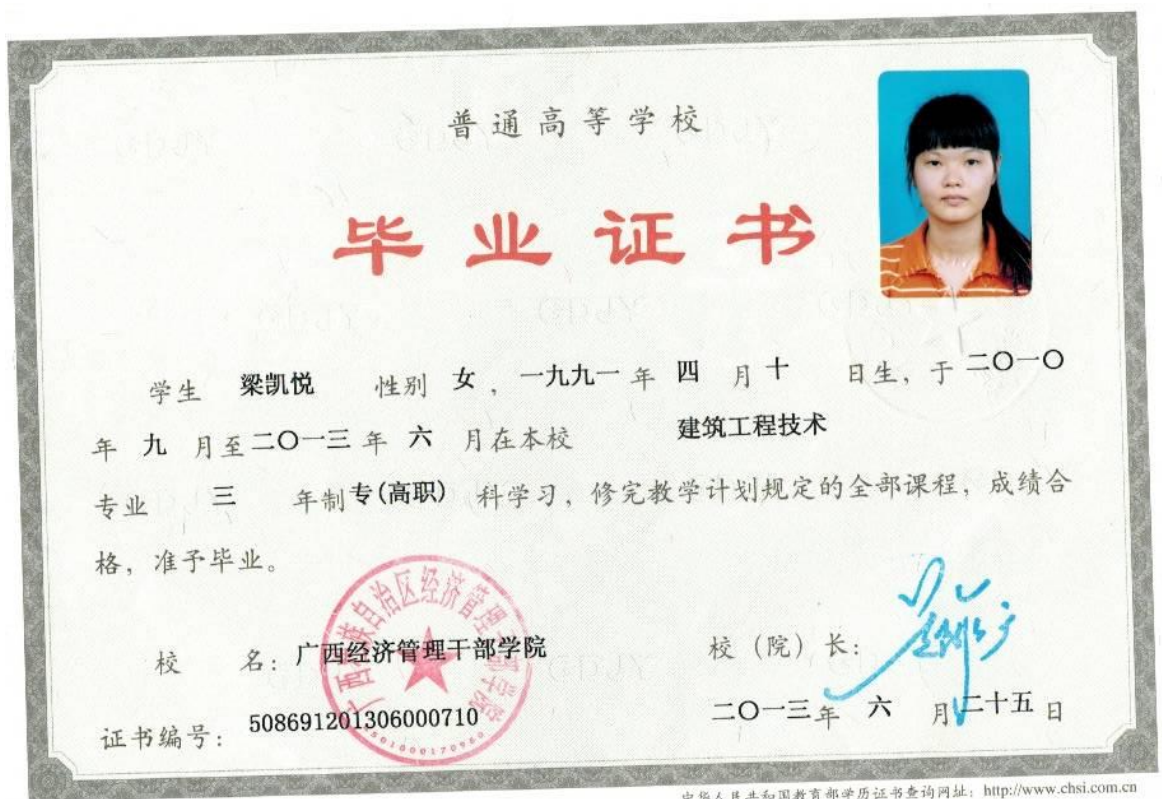 普通高等学校
毕业证书
学生 梁凯悦 性别 女，一九九一年 四 月 十 日生，于 二〇一〇
年 九 月至 二〇一三 年 六 月在本校 建筑工程技术
专业 三 年制 专(高职) 科学习，修完教学计划规定的全部课程，成绩合
格，准予毕业。
校 名：广西经济管理干部学院
校（院）长：
证书编号：508691201306000710
二〇一三年 六 月 二十五 日
中华人民共和国教育部学历证书查询网址：http://www.chsi.com.cn